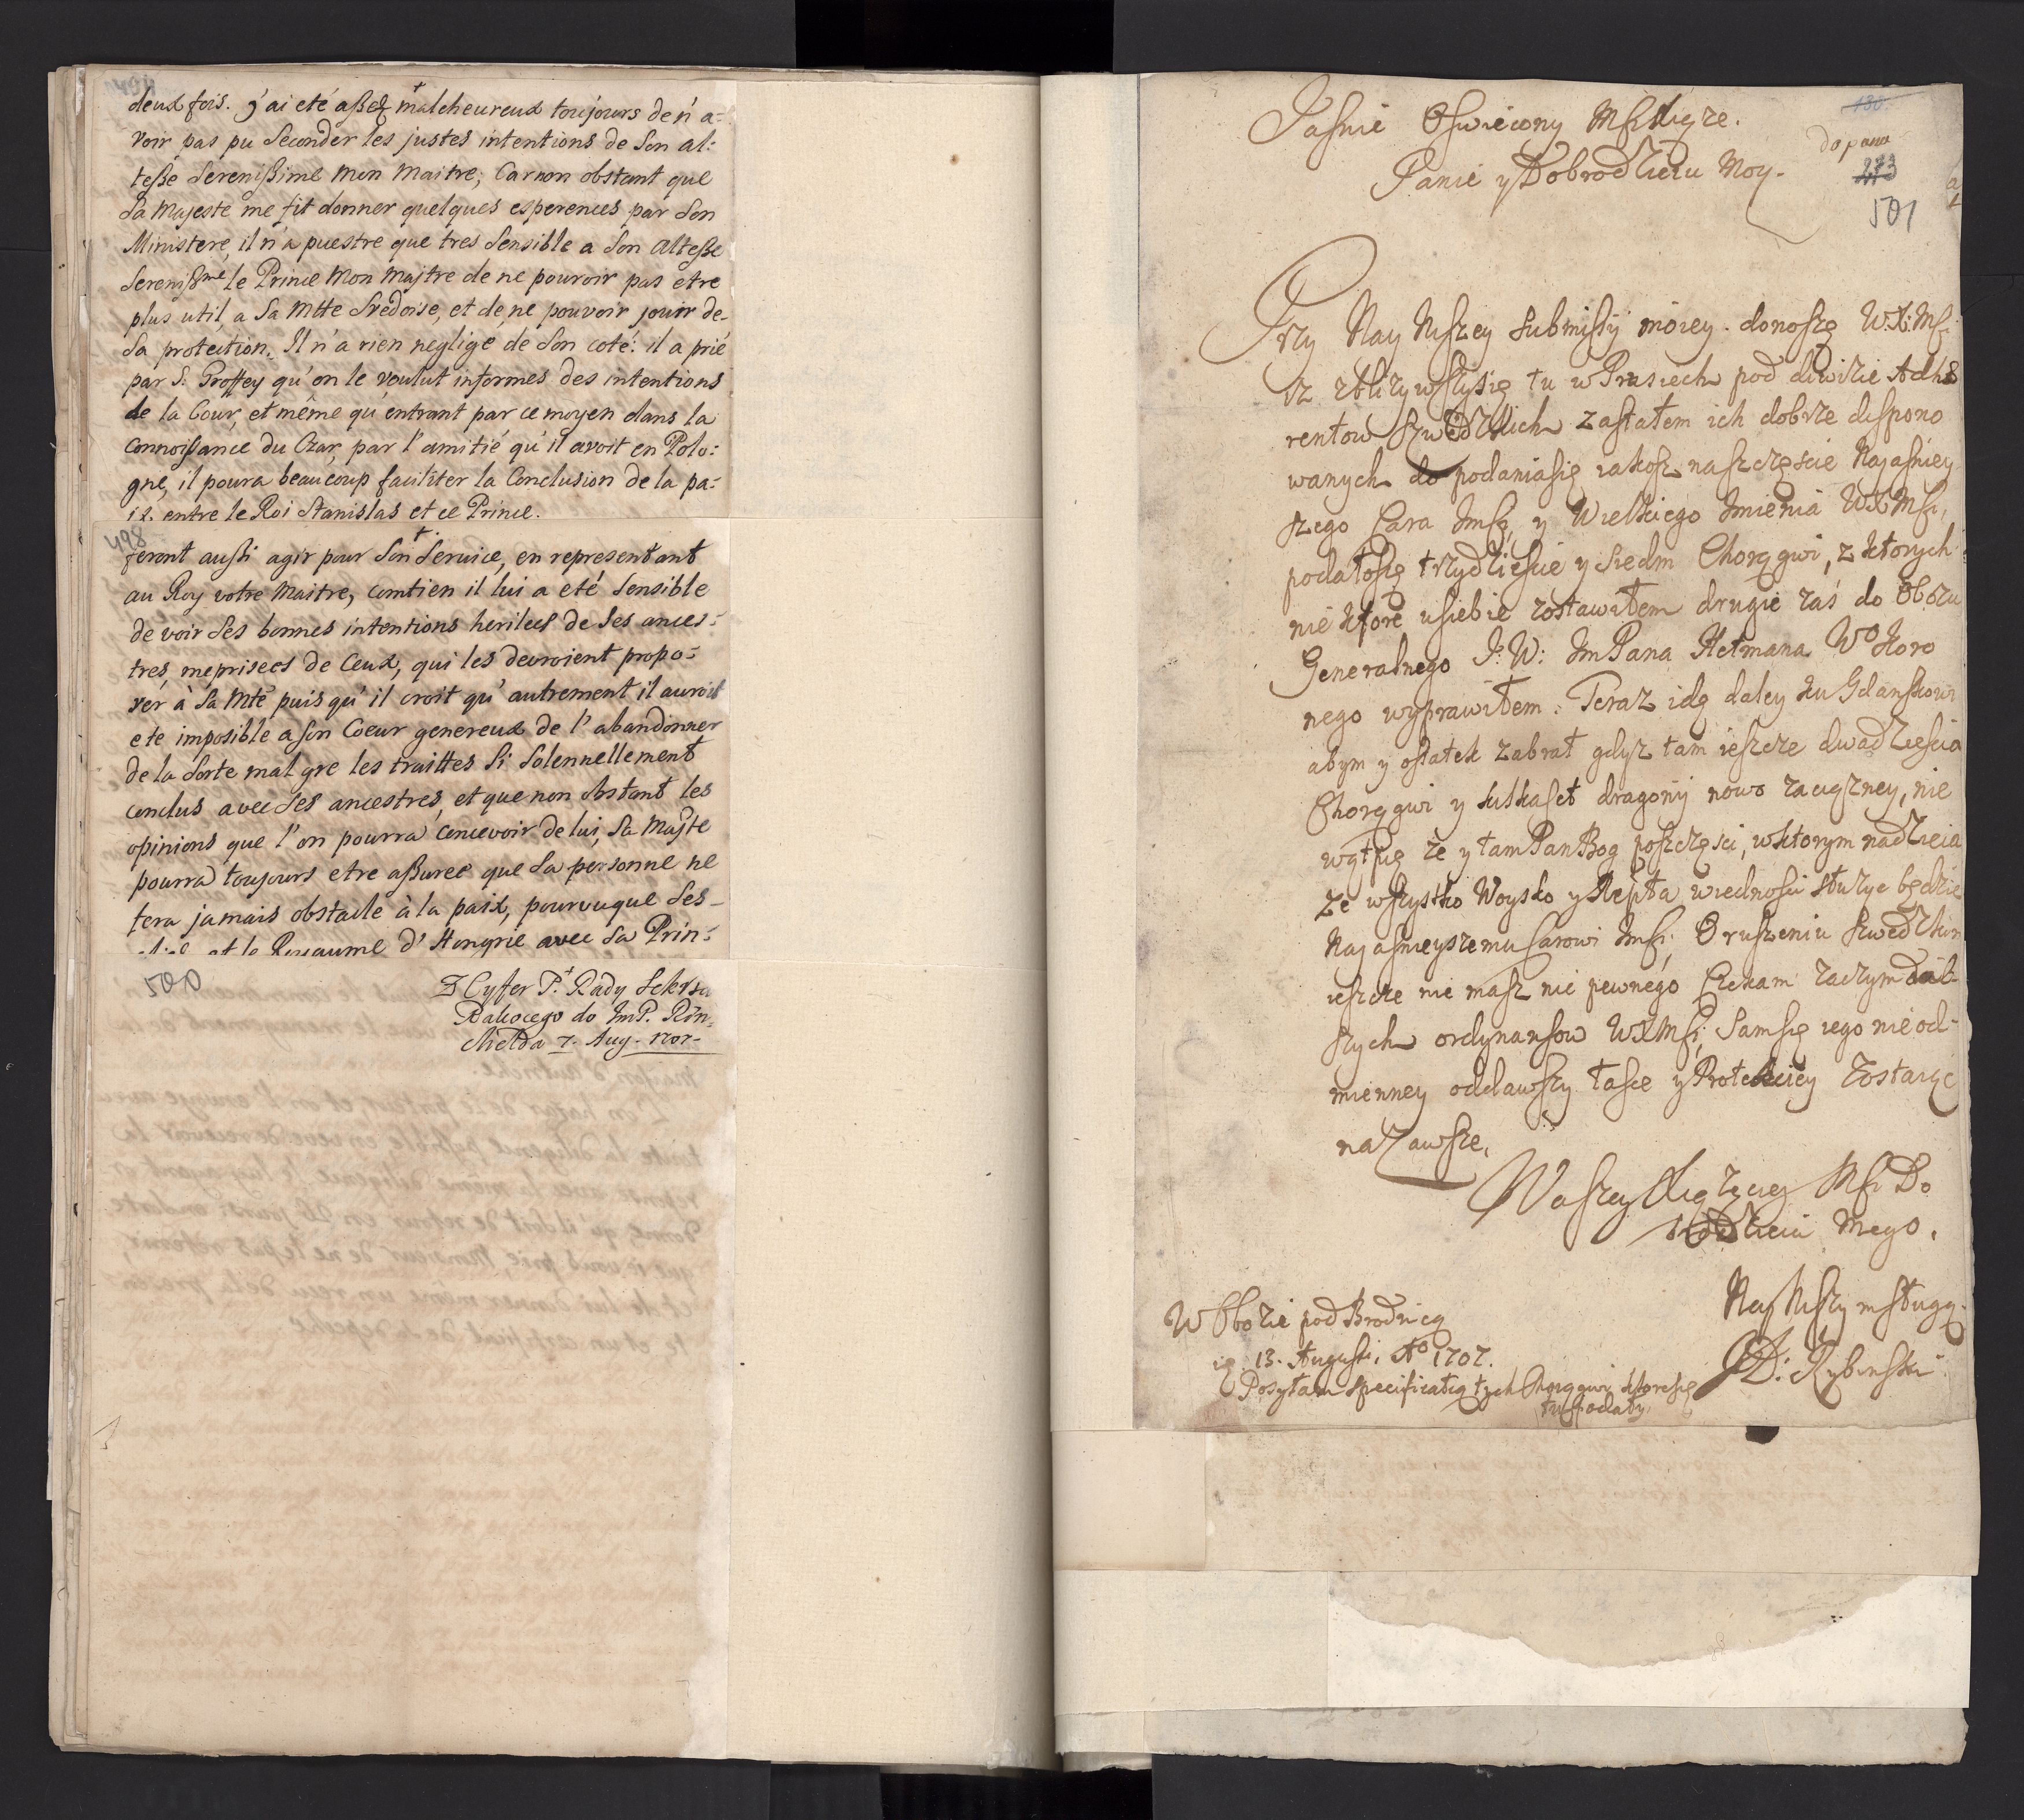 deux fois. j'ai eté assez malcheureux toujours de n'a=
voir pas pu seconder les justes intentions de Son al:
tesse Serenissime Mon Maitre; Car non obstant que
Sa Majeste me fit donner quelques esperences par Son
Ministere, il n'a pu estre que tres Sensible a Son Altesse
Sereniss.me le Prince Mon Majtre de ne pouvoir pas etre
plus util, a Sa Mtte Svedoise, et de ne pouvoir jouir de
Sa protection. Il n'a rien neglige de Son coté: il a prié
par S. Groffey qu'on le voulut informes des intentions
de la Cour, et même qu'entrant par ce moyen dans la
Connoissance du Czar, par l'amitié qu'il avoit en Polo:
gne, il poura beaucoup faciliter la Conclusion de la pa:
ix entre le Roi Stanislas et ce Prince.
498
feront aussi agir pour Son Service, en representant
au Roy votre Maitre, comtien il lui a eté Sensible
de voir Ses bonnes intentions herilees de Ses ances:
tres, meprisees de Ceux, qui les devroient propo:
ser à Sa Mté puis qu'il croit qu'autrement il auroit
ete imposible a Son Coeur genereux de l'abandonner
de la Sorte mal gre les traittes Si Solennellement
conclus avec Ses ancestres, et que non obstant les
opinions que l'on pourra concevoir de lui, Sa Majte
pourra toujours etre assuree que Sa personne ne
fera jamais obstacle à la paix, pourvuque Ses
et le Royaume d'Hongrie avec Sa Prin:
500
Z Cyfer P. Rady Sekrsa
Rakocego do ImP. Rön:
chelda 7. Aug. 1707.
180
Jasnie Oswiecony Msci Xiąze.
do pana
273
Panie y Dobrodzieiu Moy.
501
Przy Nay Nizszey submissij moiey. donoszę W.X.Msci
iz zblizywszysię tu w Prusiech pod diwizie Adhæ
rentow Szwedzkich zastałem ich dobrze dispono
wanych do podaniasię iakosz na szczęscie Najasniey
szego Cara Jmsci, y Wielkiego Jmienia WXMsci,
podałosię trzydziescie y siedm Chorągwi, z ktorych
niektore usiebie zostawiłem drugie zaś do Obozu
Generalnego J:W: JmPana Hetmana Wo Koro
nego wyprawiłem. Teraz idę daley ku Gdanskowi
abym y ostatek zabrał gdysz tam ieszcze dwadziescia
Chorągwi y kilkaset dragonij nowo zaciężney, nie
wątpię ze y tam Pan Bog poszczęsci, w ktorym nadzieia
ze wszystko Woysko y Rzpta w iednosci służyc będzie
Najasnieyszemu Carowi Jmsci, O ruszeniu Szwedzkim
ieszcze nie masz nic pewnego Czekam zaczym dal
szych ordynansow WXMsci, Samsię iego nieod
mienney oddawszy łasce y Protekciey zostaięc
na zawsze,
Waszey Xiązęcey Msci Do
brodzieia Mego.
Nay Nizszym sługą
JD: Rybinski
W Obozie pod Brodnicą
ig. 13. Augusti. Ao 1707.
Posyłam specificatią tych Chorągwi ktoresię
tu podały.